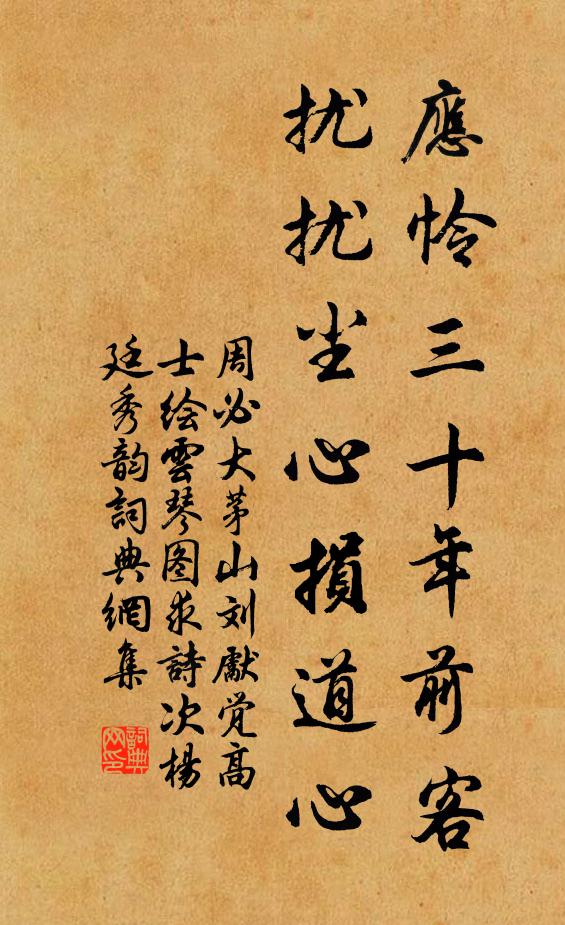 應怜三十年前客
扰扰尘心損道心
周必大茅山刘獻觉高
士绘雲琴图求詩次楊
廷秀韵詞典網集
詞典网印